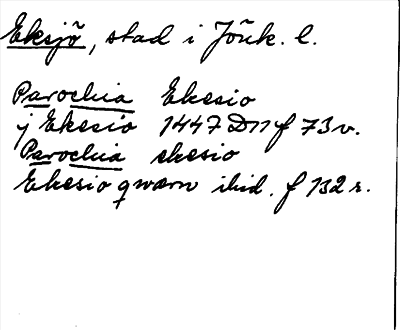 Eksjö, stad i Jönk. l.
Parochia Ekesio
j Ekesio 1447 Dn f 73 v.
Parochia ekesio
Ekesio qwarn ibid. f 132 r.